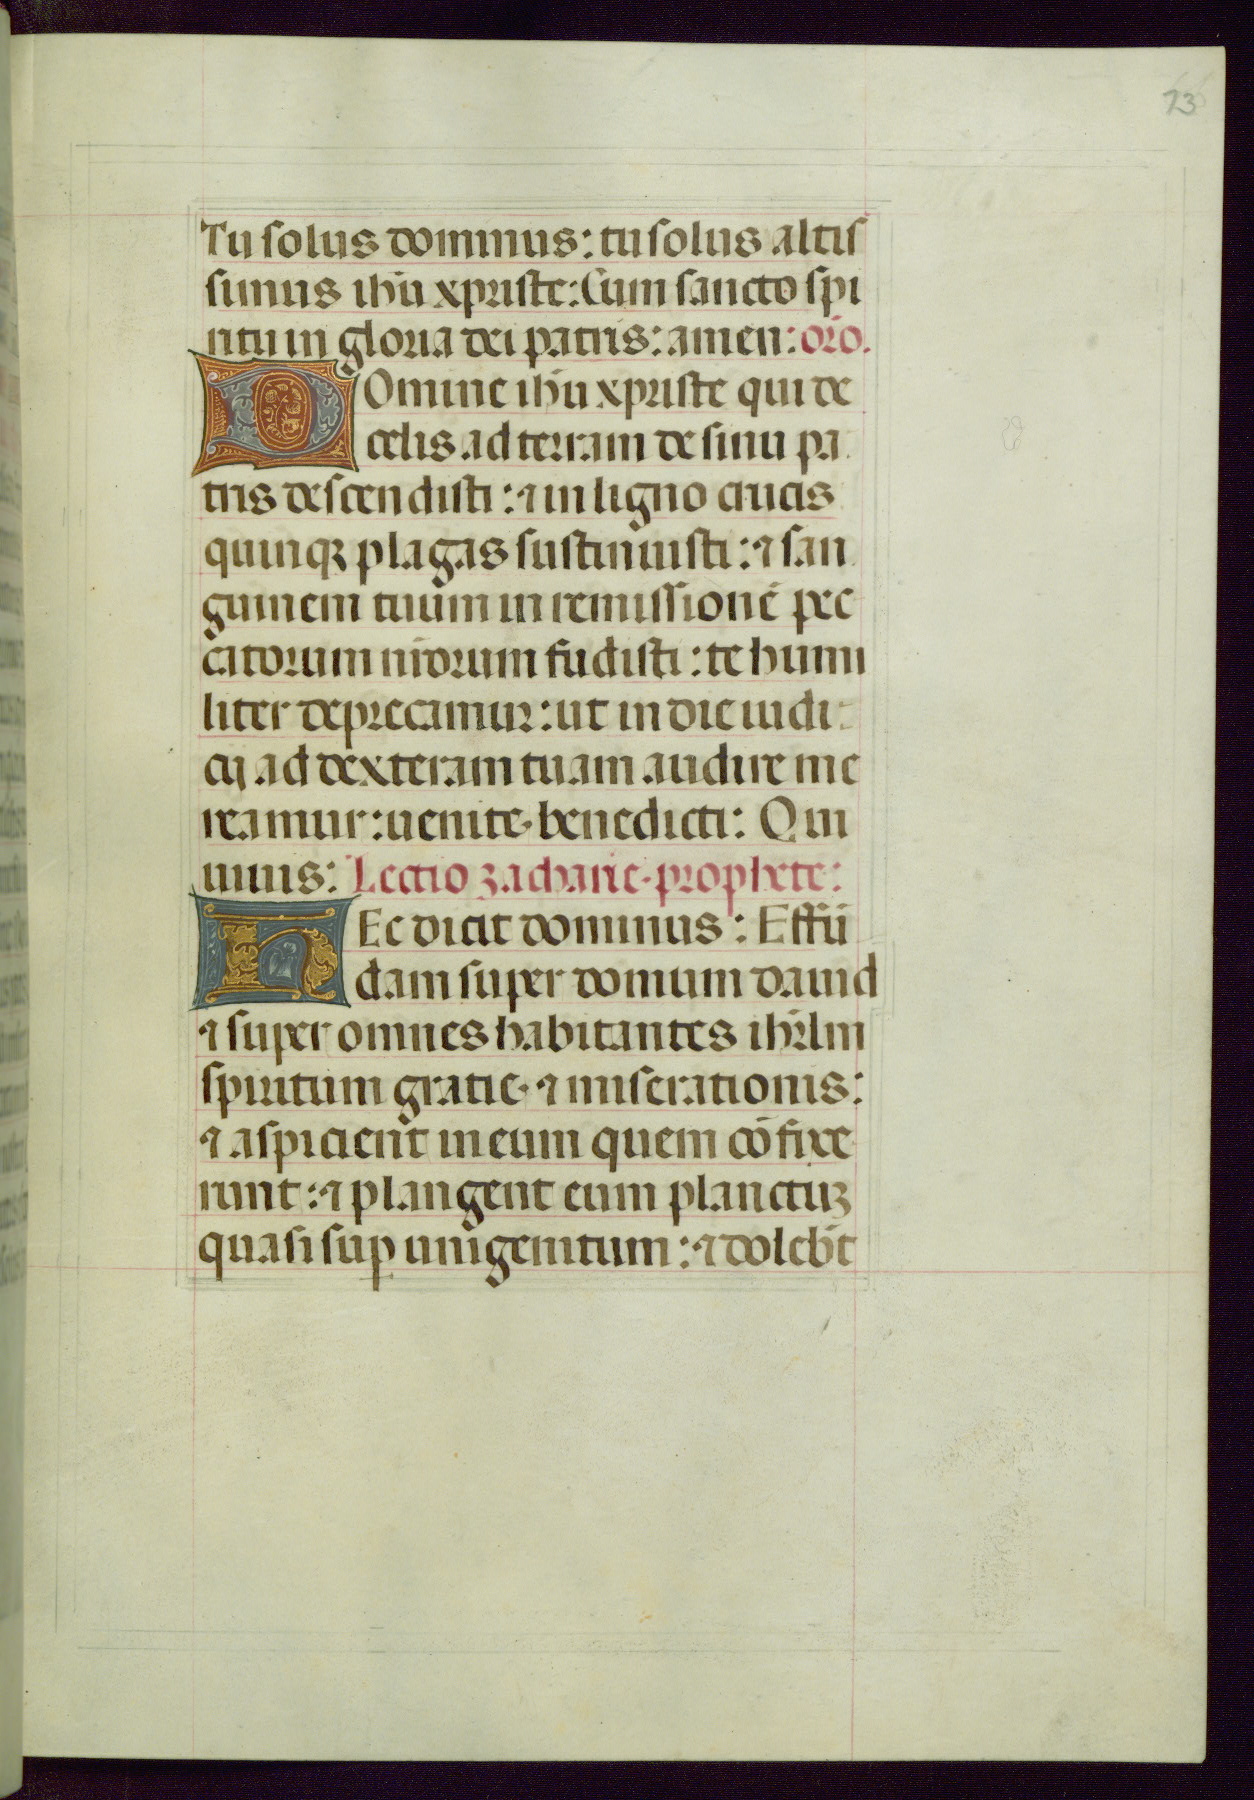 73
Tu solus dominus: tu solus altis
simus ihũ xpriste: Cum sancto spi
ritu in gloria dei patris: amen: oro.
DOmine ihũ xpriste qui de
celis ad terram de sinu pa
tris descendisti: ⁊ in ligno crucis
quinqꝫ plagas sustinuisti: ⁊ san
guinem tuum in remissionē pec
catorum nr̄orum fudisti: te humi
liter deprecamur: ut in die iudi
cij ad dexteram tuam audire me
reamur: uenite benedicti: Qui
uiuis: Lectio zacharie prophete:
HEc dicit dominus: Effũ
dam super domum dauid
⁊ super omnes habitantes ihrl̄m
spiritum gratie ⁊ miserationis:
⁊ aspicient in eum quem cōfixe
runt: ⁊ plangent eum planctuꝫ
quasi suꝑ unigenitum: ⁊ doleb̄t